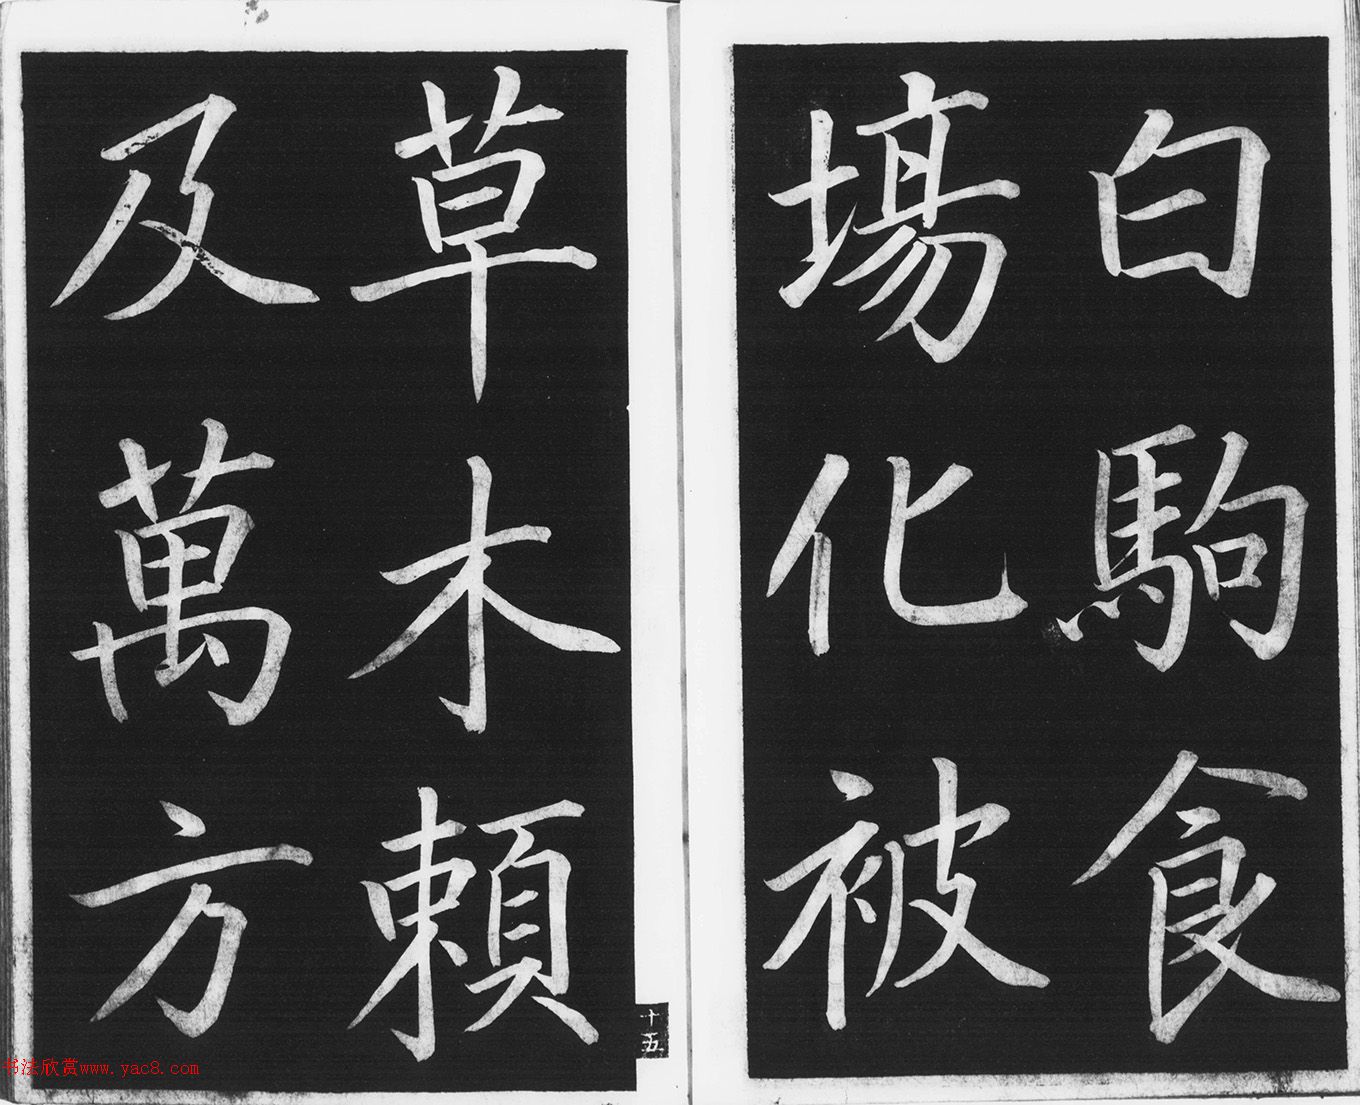 白駒食
場化被
草木賴
及萬方
十五
书法欣赏www.yac8.com